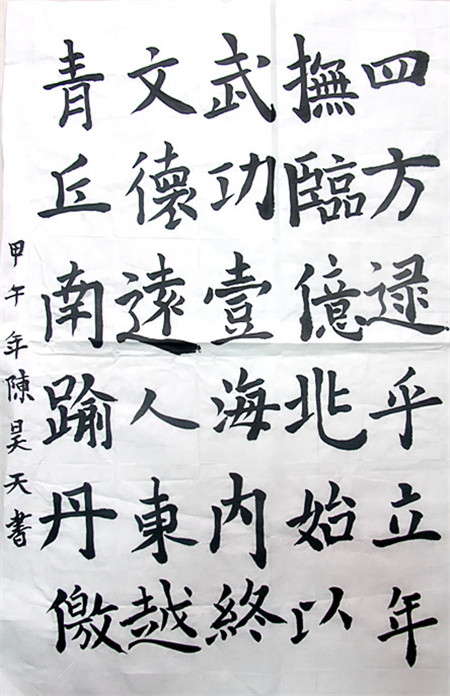 四方逮乎立年
撫臨億兆始以
武功壹海内終
文懷遠人東越
青丘南踰丹徼
甲午年陳昊天書